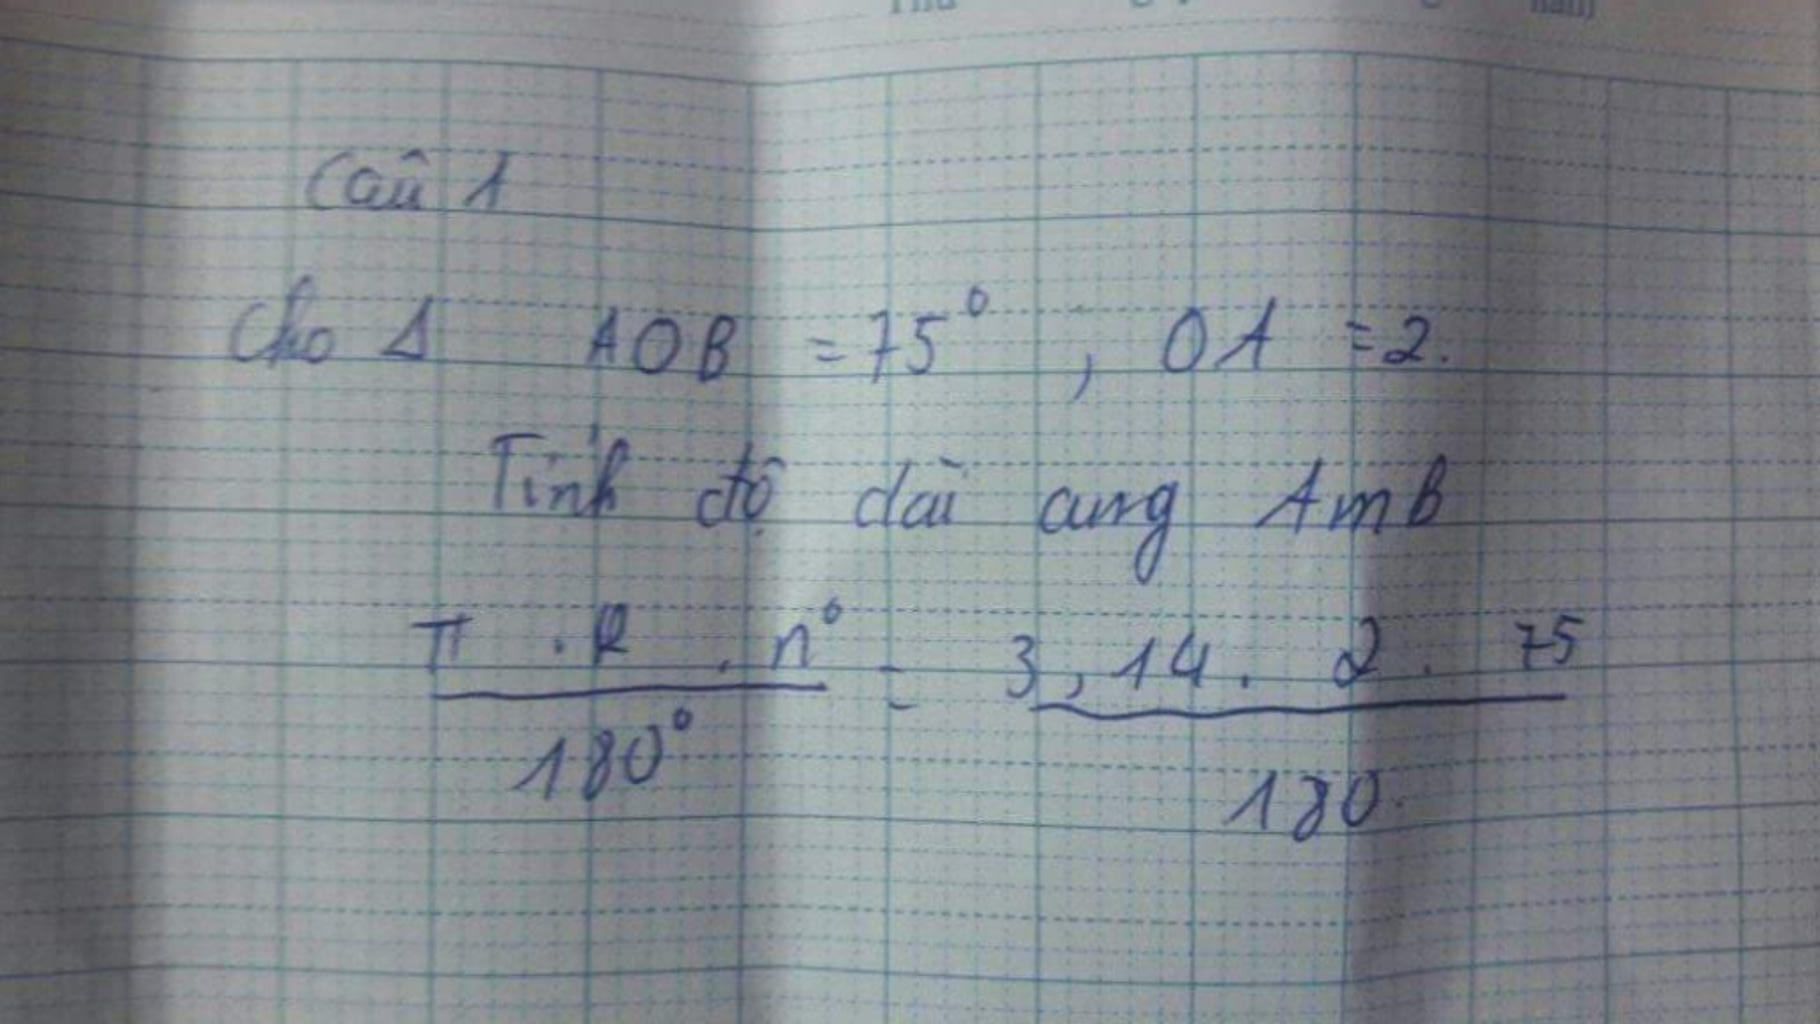 Câu 1
Cho Δ AOB = 75°, OA = 2.
Tính độ dài cung AmB
π . R . n° / 180° = 3,14 . 2 . 75 / 180.